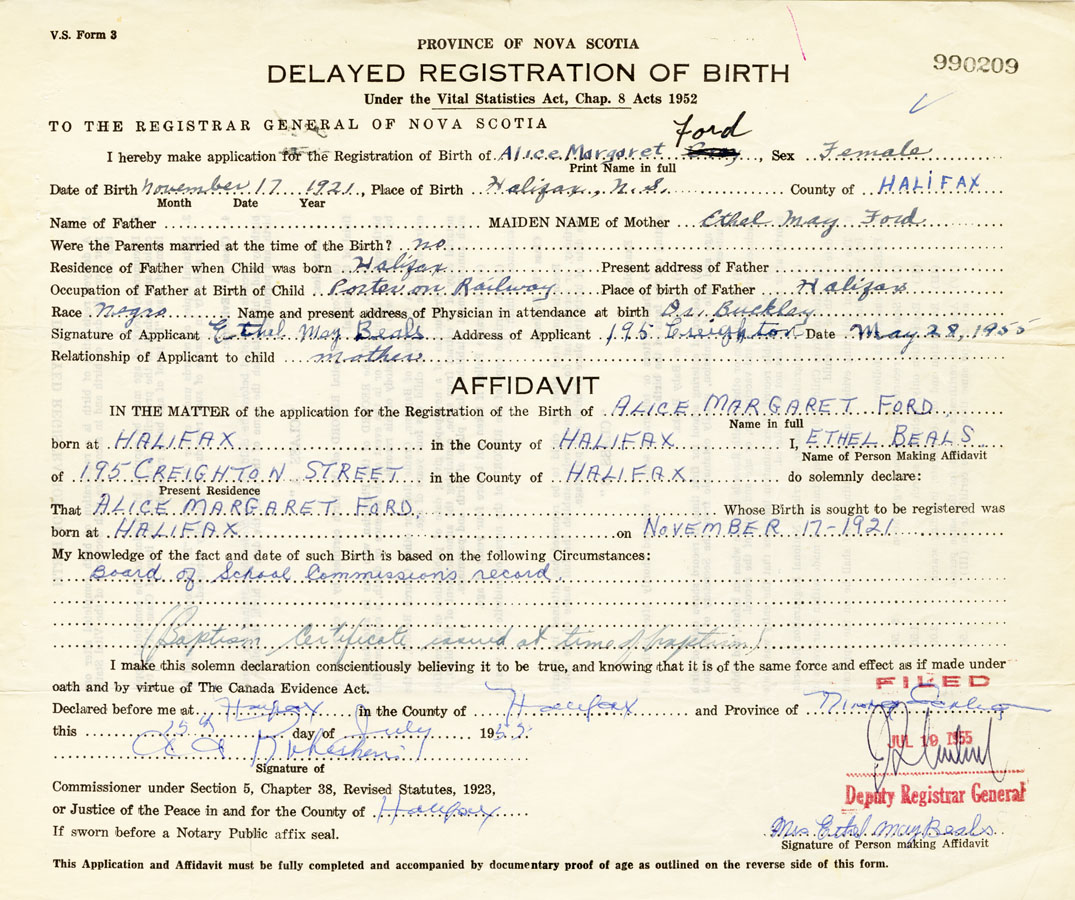 V.S. Form 3
PROVINCE OF NOVA SCOTIA
DELAYED REGISTRATION OF BIRTH
990209
Under the Vital Statistics Act, Chap. 8 Acts 1952
TO THE REGISTRAR GENERAL OF NOVA SCOTIA
Ford
I hereby make application for the Registration of Birth of Alice Margaret, Sex Female
Print Name in full
Date of Birth November 17 1921, Place of Birth Halifax, N.S. County of HALIFAX
Month Date Year
Name of Father MAIDEN NAME of Mother Ethel May Ford
Were the Parents married at the time of the Birth? no
Residence of Father when Child was born Halifax Present address of Father
Occupation of Father at Birth of Child Porter on Railway Place of birth of Father Halifax
Race Negro Name and present address of Physician in attendance at birth Dr. Buckley
Signature of Applicant Ethel May Beals Address of Applicant 195 Creighton Date May 28, 1955
Relationship of Applicant to child mother
AFFIDAVIT
IN THE MATTER of the application for the Registration of the Birth of ALICE MARGARET FORD
Name in full
born at HALIFAX in the County of HALIFAX I, ETHEL BEALS
Name of Person Making Affidavit
of 195 CREIGHTON STREET in the County of HALIFAX do solemnly declare:
Present Residence
That ALICE MARGARET FORD, Whose Birth is sought to be registered was
born at HALIFAX on NOVEMBER 17-1921
My knowledge of the fact and date of such Birth is based on the following Circumstances:
Board of School Commissions record.
(Baptism Certificate issued at time of baptism)
I make this solemn declaration conscientiously believing it to be true, and knowing that it is of the same force and effect as if made under
oath and by virtue of The Canada Evidence Act.
FILED
Declared before me at Halifax in the County of Halifax and Province of Nova Scotia
this day of July 1955
JUL 19 1955
Signature of
Commissioner under Section 5, Chapter 38, Revised Statutes, 1923,
Deputy Registrar General
or Justice of the Peace in and for the County of Halifax
If sworn before a Notary Public affix seal.
Mrs Ethel May Beals
Signature of Person making Affidavit
This Application and Affidavit must be fully completed and accompanied by documentary proof of age as outlined on the reverse side of this form.